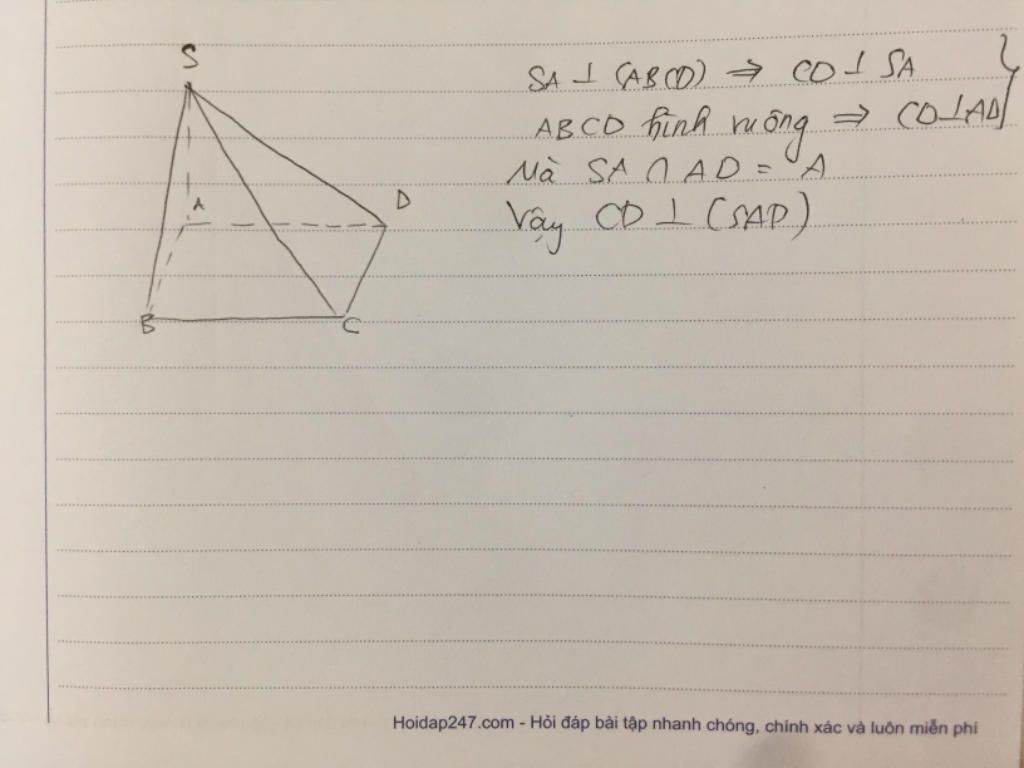 S
SA ⊥ (ABCD) ⇒ CD ⊥ SA
ABCD hình vuông ⇒ CD ⊥ AD
Mà SA ∩ AD = A
Vậy CD ⊥ (SAD)
A
D
B
C
Hoidap247.com - Hỏi đáp bài tập nhanh chóng, chính xác và luôn miễn phí